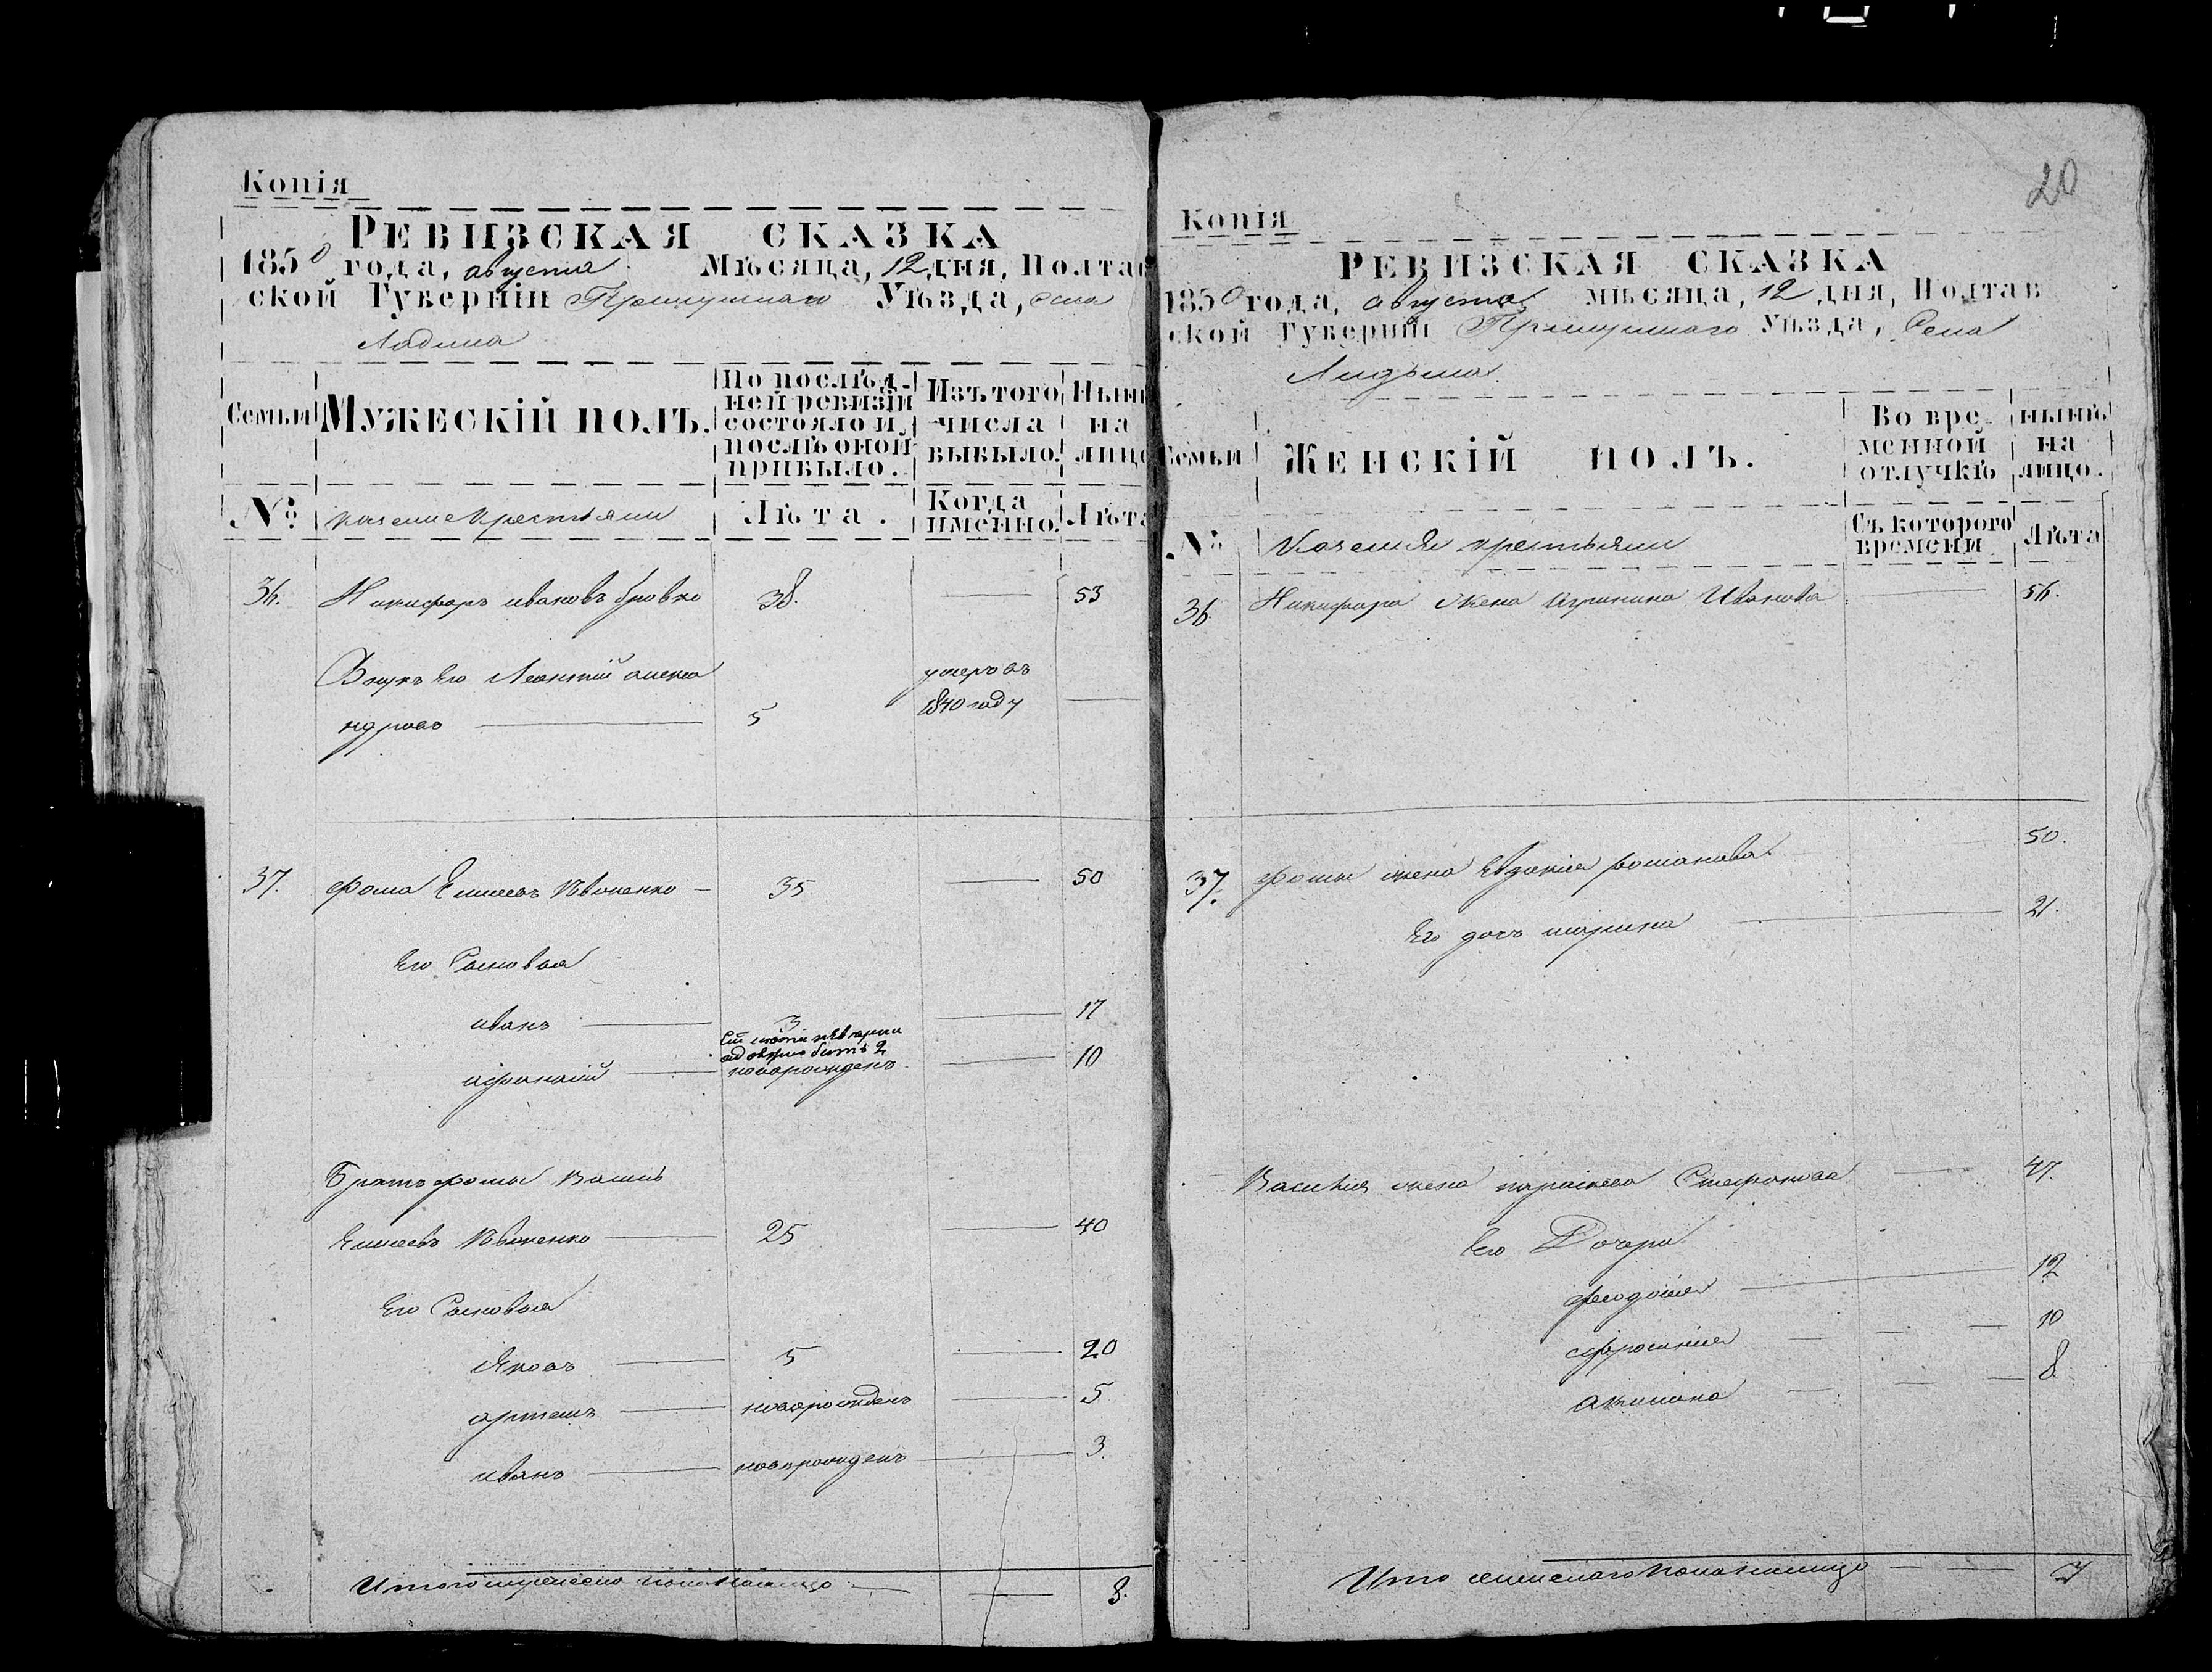 Копія
РЕВИЗСКАЯ СКАЗКА
1850 года, августа Мѣсяца, 12 дня, Полтав
ской Губерніи Прилуцкаго Уѣзда, села
Ладина
Семьи
МУЖЕСКІЙ ПОЛЪ.
По послѣд-
ней ревизіи
состояло и
послѣ оной
прибыло.
Изъ того
числа
выбыло.
Нынѣ
на
лицо
№
казеные крестьяни
Лѣта.
Когда
именно.
Лѣта
36. Никифоръ ивановъ бровко 38. 53
Внукъ Его Леонтій алекса умеръ въ
ндровъ 5 1840 году
37. фома Елисеевъ Ивоненко 35 50
Его Сыновья
иванъ 3 17
новорожденъ 10
Братъ фомы Васил
Елисеевъ Ивоненко 25 40
Его Сыновья
Яковъ 5 20
артемъ новорожденъ 5
иванъ новорожденъ 3.
Итого мужеска пола налицо 8.
20
Копія
РЕВИЗСКАЯ СКАЗКА
1850 года, августа мѣсяца, 12 дня, Полтав
ской Губерніи Прилуцкаго Уѣзда, Села
Ладина
Семьи
ЖЕНСКІЙ ПОЛЪ.
Во вре
менной
отлучкѣ
нынѣ
на
лицо.
№
Казеныя крестьяни
Съ котораго
времени
Лѣта
36. Никифора жена Иванова 56.
37. фомы жена Евдокія романова 50.
Его дочь марина 21.
Василія жена параскева Стефанова 47.
Его Дочери
феодосія 12
ефросинія 10
акилина 8
Итого женскаго пола налицо 7